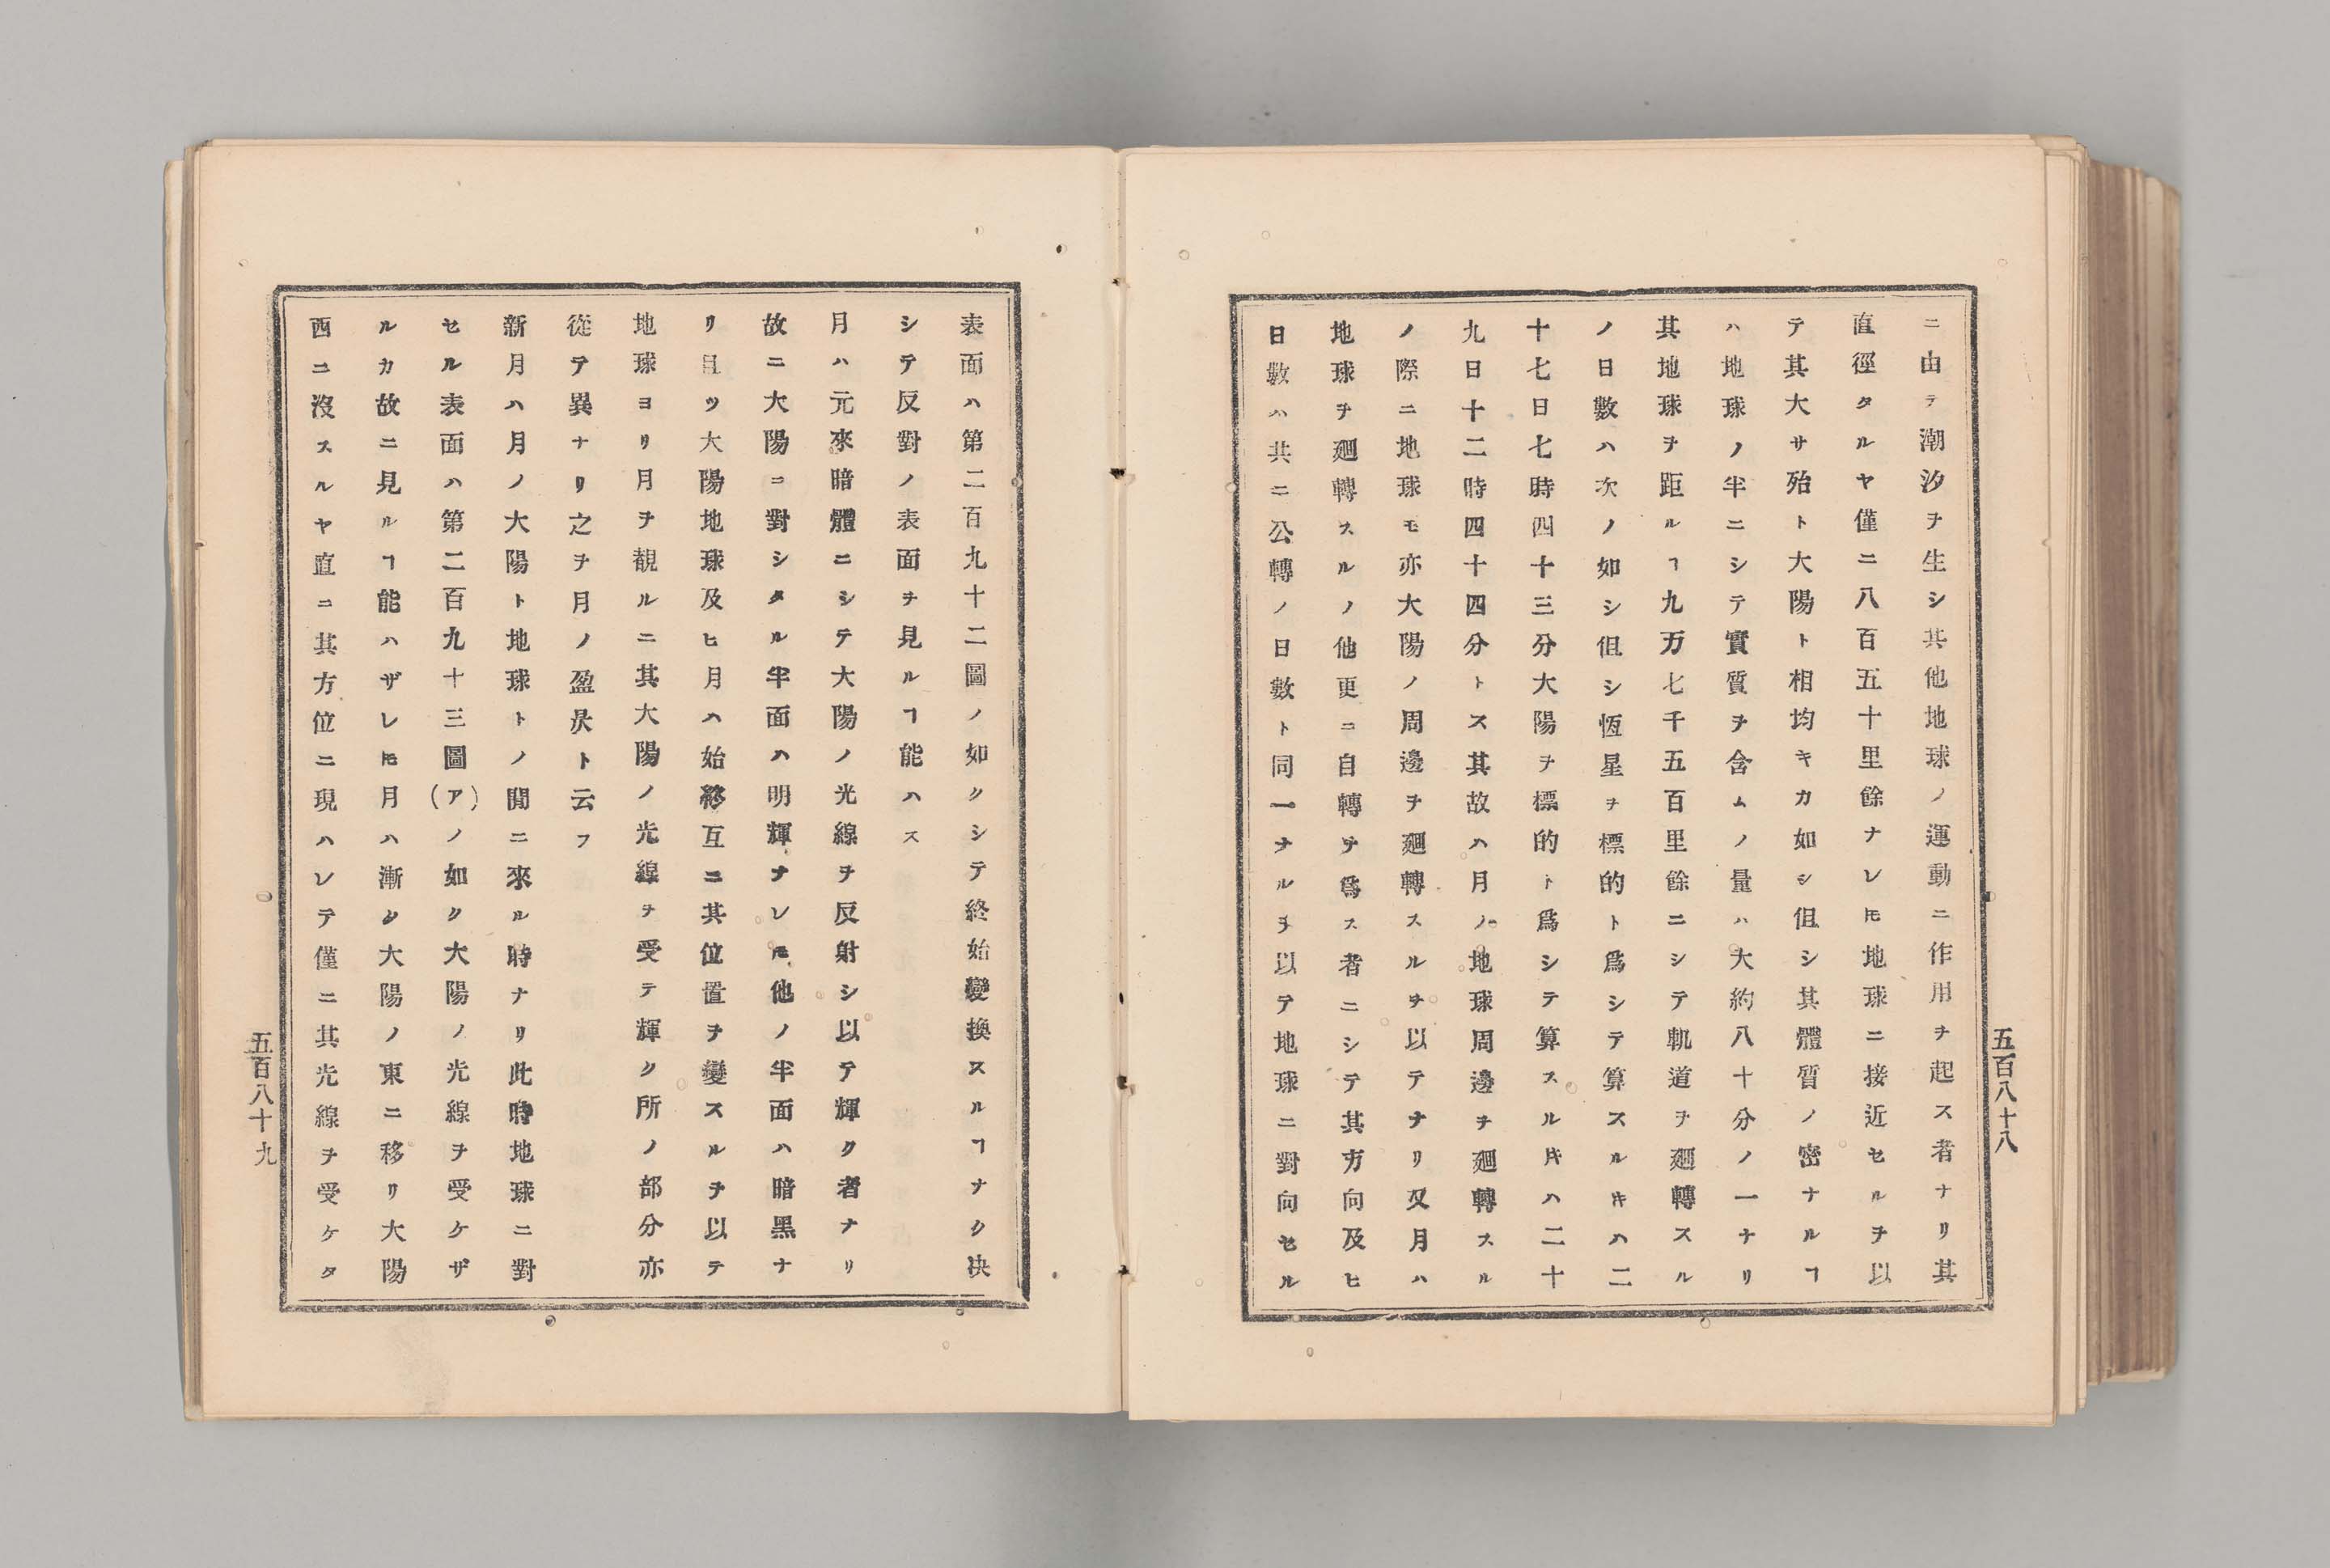 ニ由テ潮汐ヲ生シ其他地球ノ運動ニ作用ヲ起ス者ナリ其
直徑タルヤ僅ニ八百五十里餘ナレ𪜈地球ニ接近セルヲ以
テ其大サ殆ト大陽ト相均キカ如シ但シ其體質ノ密ナルヿ
ハ地球ノ半ニシテ實質ヲ含ムノ量ハ大約八十分ノ一ナリ
其地球ヲ距ルヿ九万七千五百里餘ニシテ軌道ヲ廻轉スル
ノ日數ハ次ノ如シ但シ恆星ヲ標的ト爲シテ算スルキハ二
十七日七時四十三分大陽ヲ標的ト爲シテ算スル𪜈ハ二十
九日十二時四十四分トス其故ハ月ノ地球周邊ヲ廻轉スル
ノ際ニ地球モ亦大陽ノ周邊ヲ廻轉スルヲ以テナリ又月ハ
地球ヲ廻轉スルノ他更ニ自轉ヲ爲ス者ニシテ其方向及ヒ
日數ハ共ニ公轉ノ日數ト同一ナルヲ以テ地球ニ對向セル
五百八十八
表面ハ第二百九十二圖ノ如クシテ終始變換スルヿナク决
シテ反對ノ表面ヲ見ルヿ能ハス
月ハ元來暗體ニシテ大陽ノ光線ヲ反射シ以テ輝ク者ナリ
故ニ大陽ニ對シタル半面ハ明輝ナレ𪜈他ノ半面ハ暗黑ナ
リ且ツ大陽地球及ヒ月ハ始終互ニ其位置ヲ變スルヲ以テ
地球ヨリ月ヲ覩ルニ其大陽ノ光線ヲ受テ輝ク所ノ部分亦
從テ異ナリ之ヲ月ノ盈昃ト云フ
新月ハ月ノ大陽ト地球トノ間ニ來ル時ナリ此時地球ニ對
セル表面ハ第二百九十三圖(ア)ノ如ク大陽ノ光線ヲ受ケザ
ルカ故ニ見ルヿ能ハザレ𪜈月ハ漸ク大陽ノ東ニ移リ大陽
西ニ沒スルヤ直ニ其方位ニ現ハレテ僅ニ其光線ヲ受ケタ
五百八十九